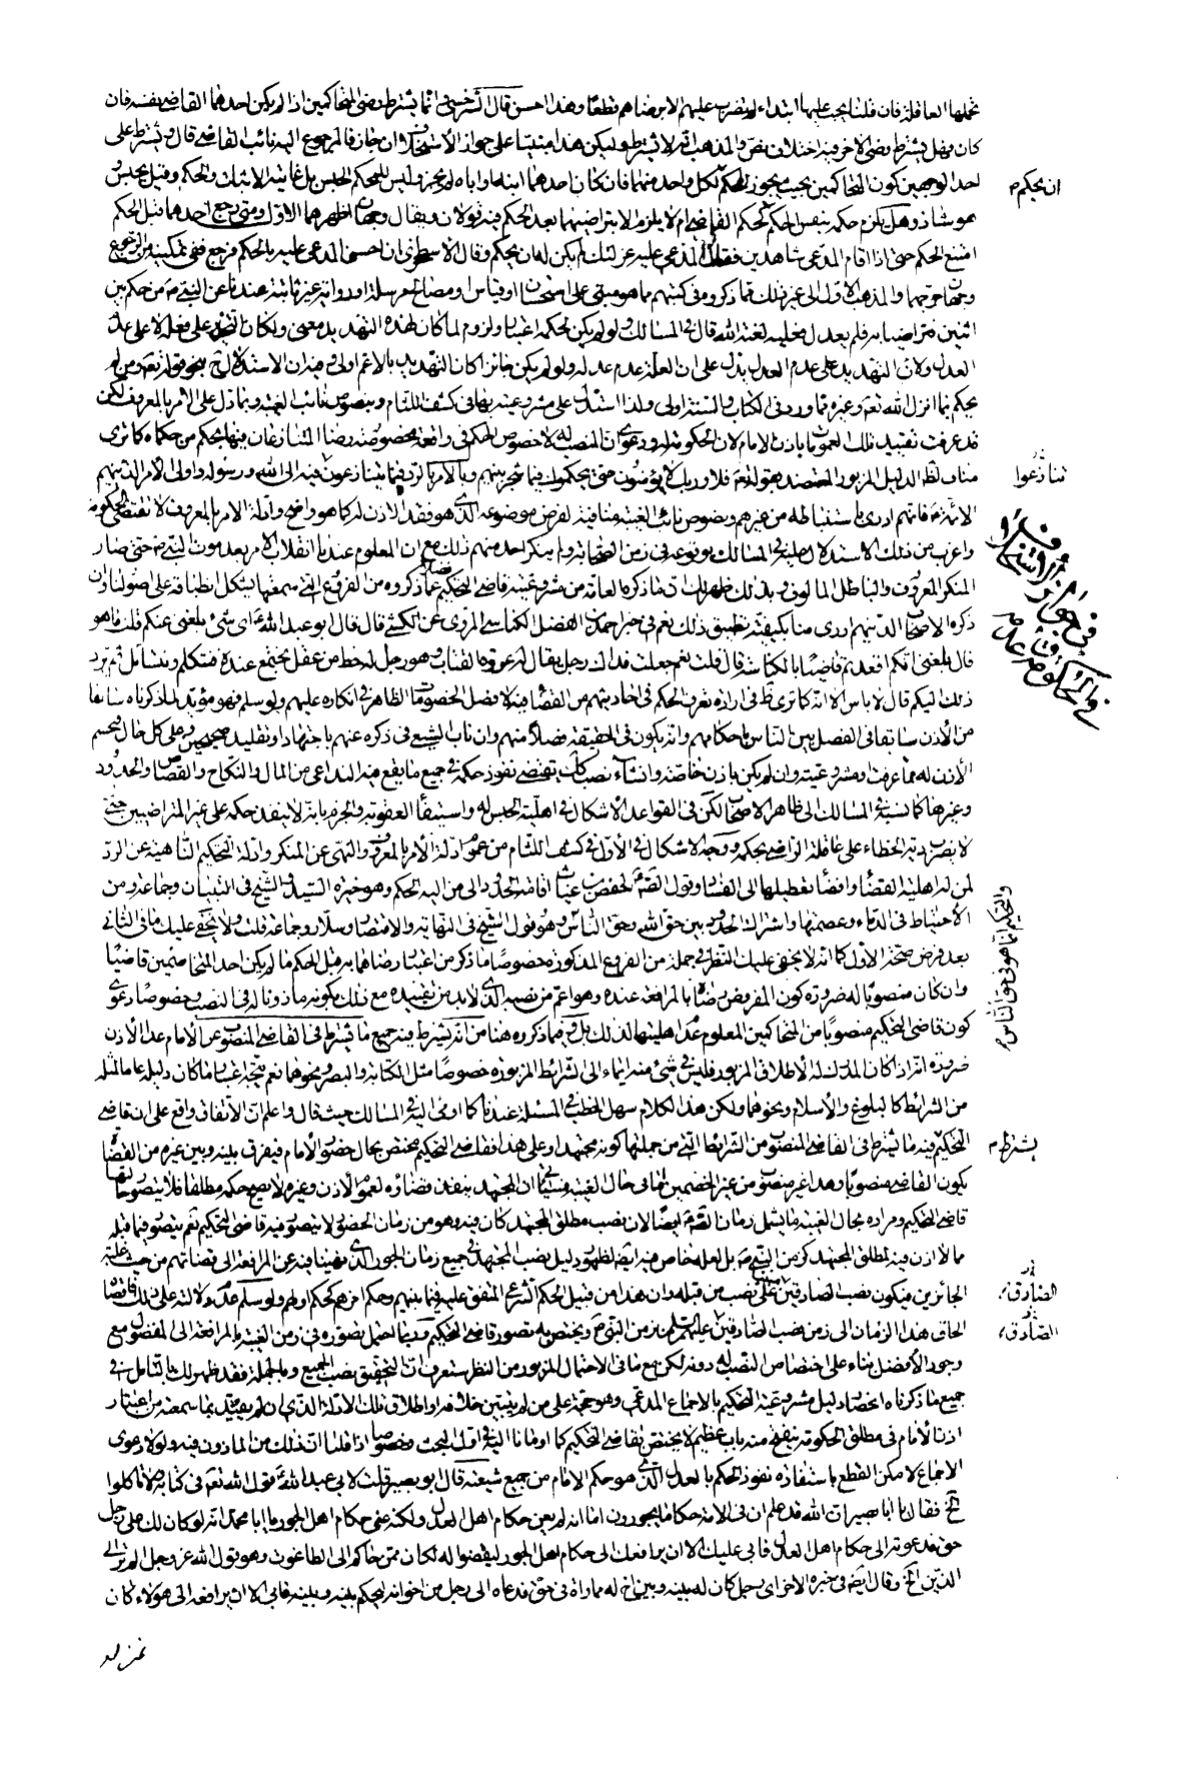 تحملها العاقلة فان قلنا تجب عليها ابتداء لم تضرب عليهم الا برضاهم قطعا وهذا حسن قال السرخسي وانما يشترط رضى المتحاكمين اذا لم يكن احدهما القاضي نفسه فان
كان فهل يشترط رضى الاخر فيه اختلاف نص والمذهب انه لا يشترط وليكن هذا مبنيا على جواز الاستخلاف ان جاز فالمرجوع اليه نائب القاضي قال ويشترط على
احد الوجهين كون المتحاكمين بحيث يجوز للحكم لكل واحد منهما فان كان احدهما ابنه او اباه لم يجز وليس للمحكم الحبس بل غايته الاثبات والحكم وقيل يحبس
هو شاذ وهل يلزم حكمه بنفس الحكم كحكم القاضي ام لا يلزم الا بتراضيهما بعد الحكم فيه قولان ويقال وجهان اظهرهما الاول ومتى رجع احدهما قبل الحكم
امتنع الحكم حتى اذا اقام المدعي شاهدين فقال المدعى عليه عزلتك لم يكن له ان يحكم وقال الاسطخري ان احس المدعى عليه بالحكم فرجع ففي تمكينه من الرجوع
وجهان والمذهب الاول الى غير ذلك مما ذكروه في كتبهم مما هو مبني على استحسان او قياس او مصالح مرسلة او رواية غير ثابتة عندنا عن النبي ص من حكم بين
اثنين فتراضيا به فلم يعدل فعليه لعنة الله قال في المسالك ولو لم يكن لحكمه اعتبار ولزوم لما كان لهذا التهديد معنى ولكان التهديد على فعله لا على عدم
العدل ولان التهديد على عدم العدل يدل على ان العلة عدم عدله ولو لم يكن جائزا كان التهديد بالاعم اولى وفيه ان الاستدلال بنحو قوله تعالى ومن لم
يحكم بما انزل الله تعالى وغيره مما ورد في الكتاب والسنة اولى ولذا استدل على مشروعيته بها في كشف اللثام وبنصوص نائب الغيبة وبما دل على الامر بالمعروف لكن
قد عرفت تقييد ذلك العموم باذن الامام لان الحكومة له ودعوى ان المنصب له لا خصوص الحكم في واقعة مخصوصة رضيا المتنازعان فيها بحكم من حكماه كما ترى
مناف لظاهر الدليل المزبور المعتضد بقوله تعالى فلا وربك لا يؤمنون حتى يحكموك فيما شجر بينهم وبالامر بالرد فيما يتنازعون فيه الى الله ورسوله واولي الامر الذين هم
الائمة ع فانهم ادرى باستنباطه من غيرهم ونصوص نائب الغيبة منافية لفرض موضوعه الذي هو فقد الاذن له كما هو واضح وادلة الامر بالمعروف لا تقتضي الحكومة
واغرب من ذلك الاستدلال عليه في المسالك بوقوعه في زمن الصحابة ولم ينكر احد منهم ذلك مع ان المعلوم عندنا انقلاب الامر بعد موت النبي ص حتى صار
المنكر المعروف والباطل المالوف وبذلك ظهر لك ان ما ذكره العامة من مشروعية قاضي التحكيم فضلا عما ذكروه من الفروع التي سمعتها يشكل انطباقه على اصولنا وان
ذكره الاصحاب الذين هم ادرى منا بكيفية تطبيق ذلك نعم في خبر احمد بن الفضل الكناسي المروي عن الكشي قال قال ابو عبد الله ع اي شئ بلغني عنكم قلت ما هو
قال بلغني انكم اقعدتم قاضيا بالكناسة قال قلت نعم جعلت فداك رجل يقال له عروة القتات وهو رجل له حظ من عقل نجتمع عنده فنتكلم ونتسائل ثم نرد
ذلك اليكم قال لا باس الا انه كما ترى ظ في ارادة تعرف الحكم في احاديثهم من القضاء فيه لا فصل الخصومات الظاهر في انكاره عليهم ولو سلم فهو مؤيد لما ذكرناه سابقا
من الاذن سابقا في الفصل بين الناس باحكامهم وانه يكون في الحقيقة قضاء منهم وان ناب الشيعي في ذكره عنهم باجتهاد او تقليد صحيحين وعلى كل حال فبحسم
الاذن له مما عرفت ومشروعيته وان لم يكن باذن خاصة وانشاء نصب كان مقتضى نفوذ حكمه في جميع ما يقع فيه التداعي من المال والنكاح والقصاص والحدود
وغيرها كما نسبه في المسالك الى ظاهر الاصحاب لكن في القواعد الاشكال في اهلية الحبس له واستيفاء العقوبة والجزم بانه لا ينفذ حكمه على غير المتراضيين حتى
لا يضرب دية الخطاء على عاقلة الراضي بحكمه ووجه الاشكال في الاول في كشف اللثام من عموم ادلة الامر بالمعروف والنهي عن المنكر وادلة التحكيم الناهية عن الرد
لمن له اهلية القضاء وافضاء تعطيلها الى الفساد وقول الصادق ع لحفص بن غياث اقامة الحدود الى من اليه الحكم وهو خيرة السيد والشيخ في التبيان وجماعة ومن
الاحتياط في الدماء وعصمتها واشتراك الحدود بين حق الله وحق الناس وهو قول الشيخ في النهاية والاقتصاد وسلار وجماعة قلت ولا يخفى عليك ما في الثاني
بعد فرض صحة الاول كما انه لا يخفى عليك النظر في جملة من الفروع المذكورة خصوصا ما ذكر من اعتبار رضاهما به قبل الحكم ما لم يكن احد المتخاصمين قاضيا
وان كان منصوبا له ضرورة كون المفروض رضا بالمرافعة عنده وهو اعم من نصبه الذي لا بد من تقييده مع ذلك بكونه ماذونا له في النصب وخصوصا دعوى
كون قاضي التحكيم منصوبا من المتحاكمين المعلوم عدم اهليتهما لذلك بل وفيما ذكروه هنا من انه يشترط فيه جميع ما يشترط في القاضي المنصوب عن الامام عدا الاذن
ضرورة انه اذا كان المدرك له الاطلاق المزبور فليس في شئ منه ايماء الى الشرائط المزبورة خصوصا مثل الكتابة والبصر ونحوهما نعم يتجه اعتبار ما كان دليله عاما لمثله
من الشرائط كالبلوغ والاسلام ونحوهما ولكن هذا الكلام سهل الخطب في المسئلة عندنا كما اومى اليه في المسالك حيث قال واعلم ان الاتفاق واقع على ان قاضي
التحكيم فيه ما يشترط في القاضي المنصوب من الشرائط التي من جملتها كونه مجتهدا وعلى هذا فقاضي التحكيم مختص بحال حضور الامام فيفرق بينه وبين غيره من القضاة
بكون القاضي منصوبا وهذا غير منصوب من غير الخصمين اما في حال الغيبة فسياتي ان المجتهد ينفذ قضاؤه لعموم الاذن وغيره لا يصح حكمه مطلقا فلا يتصور حالتها
قاضي التحكيم ومراده بحال الغيبة ما يشمل زمان الصادق ع ايضا لان نصب مطلق المجتهد كان فيه وهو من زمان الحضور لا يتصور فيه قاضي التحكيم نعم يتصور فيما قبله
مما لا اذن فيه لمطلق المجتهد كزمن النبي ص بل لعله خاص فيه ايضا لظهور دليل نصب المجتهد في جميع زمان الجور الذي نهينا فيه عن المرافعة الى قضاتهم من حيث غلبة
الجائرين فيكون نصب الصادقين ع على نصب من قبله وان هذا من قبيل الحكم الشرعي المتفق عليه فيما بينهم وحكم اخرهم كحكم اولهم ولو سلم عدم دلالته على ذلك فاقصاه
الحاق هذا الزمان الى زمن نصب الصادقين عليهما السلم بزمن النبي ص ويختص به تصور قاضي التحكيم وربما احتمل تصوره في زمن الغيبة بالمرافعة الى المفضول مع
وجود الافضل بناء على اختصاص النصب له دونه لكن مع ما في الاحتمال المزبور من النظر ستعرف ان التحقيق نصب الجميع وبالجملة فقد ظهر لك بالتامل في
جميع ما ذكرناه انحصار دليل مشروعية التحكيم بالاجماع المدعى وهو حجة على من لم يتبين خلافه او اطلاق تلك الادلة الذي ان لم يقيد بما سمعته من اعتبار
اذن الامام في مطلق الحكومة ينفتح منه باب عظيم لا يختص بقاضي التحكيم كما اومانا اليه في اول البحث وخصوصا اذا قلنا ان ذلك من الماذون فيه ولولا دعوى
الاجماع لامكن القطع باستفادة نفوذ الحكم بالعدل الذي هو حكم الامام من جميع شيعته قال ابو بصير قلت لابي عبد الله ع قول الله تعالى في كتابه ولا تاكلوا
الخ فقال يا ابا بصير ان الله قد علم ان في الامة حكاما يجورون اما انه لم يعن حكام اهل العدل ولكنه عنى حكام اهل الجور يا ابا محمد انه لو كان لك على رجل
حق فدعوته الى حكام اهل العدل فابى عليك الا ان يرافعك الى حكام اهل الجور ليقضوا له لكان ممن حاكم الى الطاغوت وهو قول الله عز وجل الم تر الى
الذين الخ وقال ايضا في خبره الاخر اي رجل كان له بينه وبين اخ له مماراة في حق فدعاه الى رجل من اخوانه ليحكم بينه وبينه فابى الا ان يرافعه الى هؤلاء كان
ان يحكم م
تنازعوا
في جواز الاستخلاف
والتحكيم انما هو في حق الناس م
يشترط م
الصادق ع
الصادق ع
بمنزلة